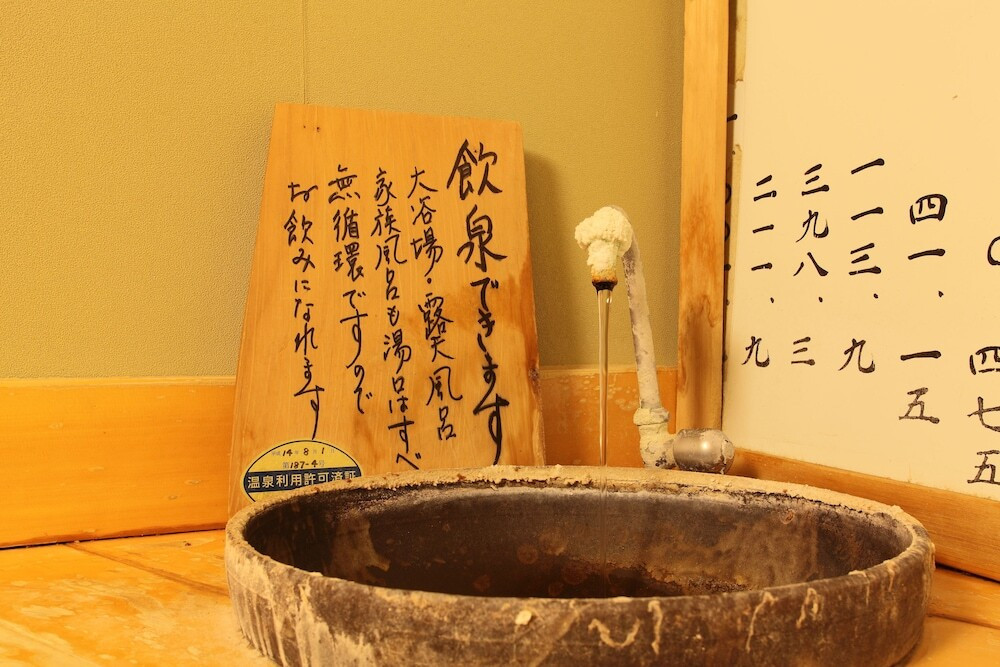 飲泉できます
大浴場・露天風呂
家族風呂も湯口はすべ
無循環ですので
お飲みになれます
平成14年8月1日
第187-4号
温泉利用許可済証
四七五
四一、一五
一一三、九
三九八、三
二一一、九